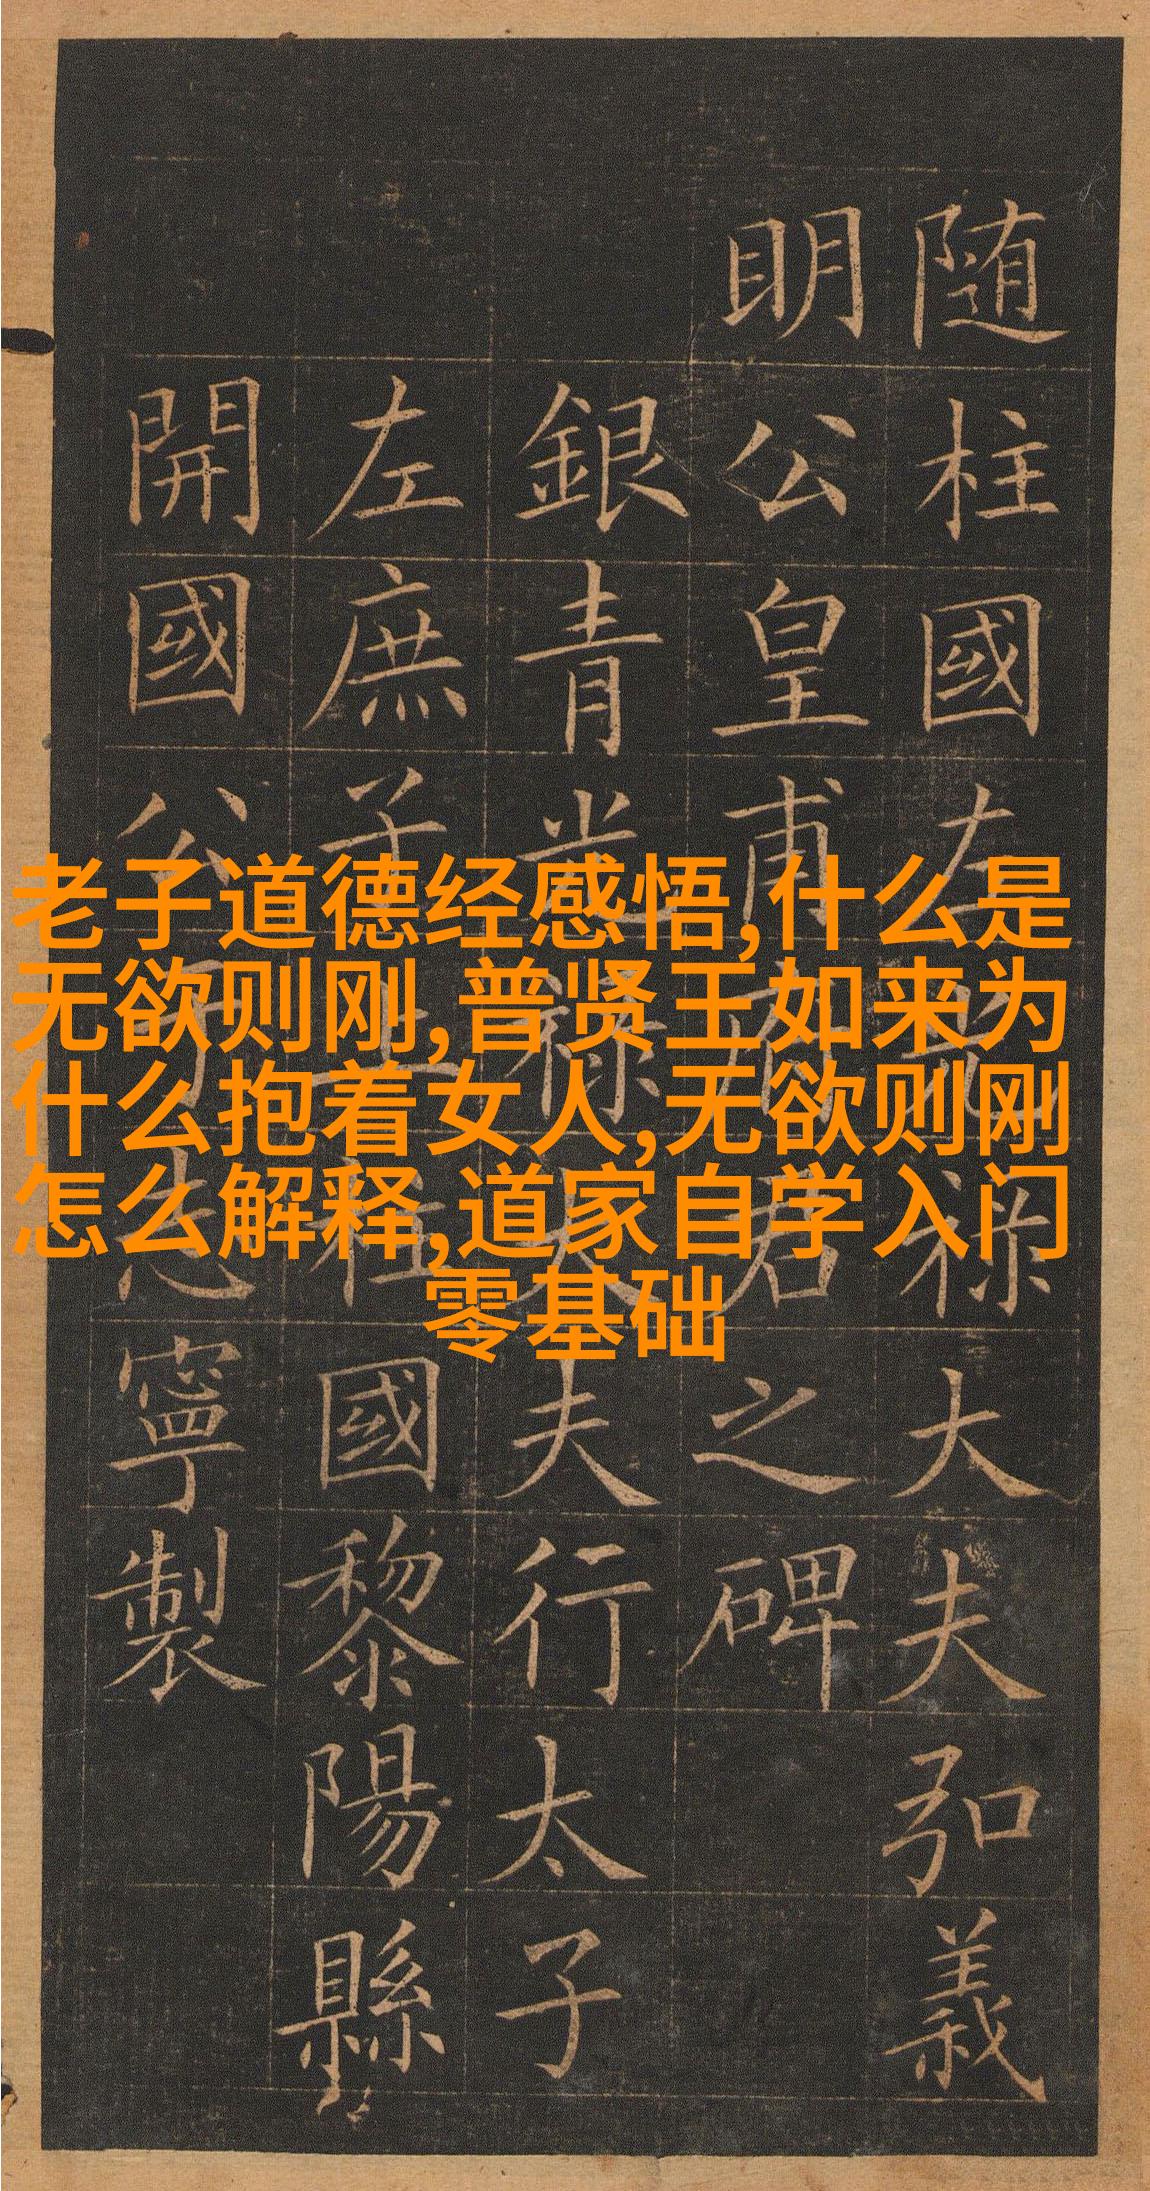 老子道德经感悟,什么是
无欲则刚,普贤王如来为
什么抱着女人,无欲则刚
怎么解释,道家自学入门
零基础
随柱國左光禄大夫弘義
明公皇甫府君之碑
銀青光禄大夫行太子
左庶子上柱國黎陽縣
開國公于志寧製